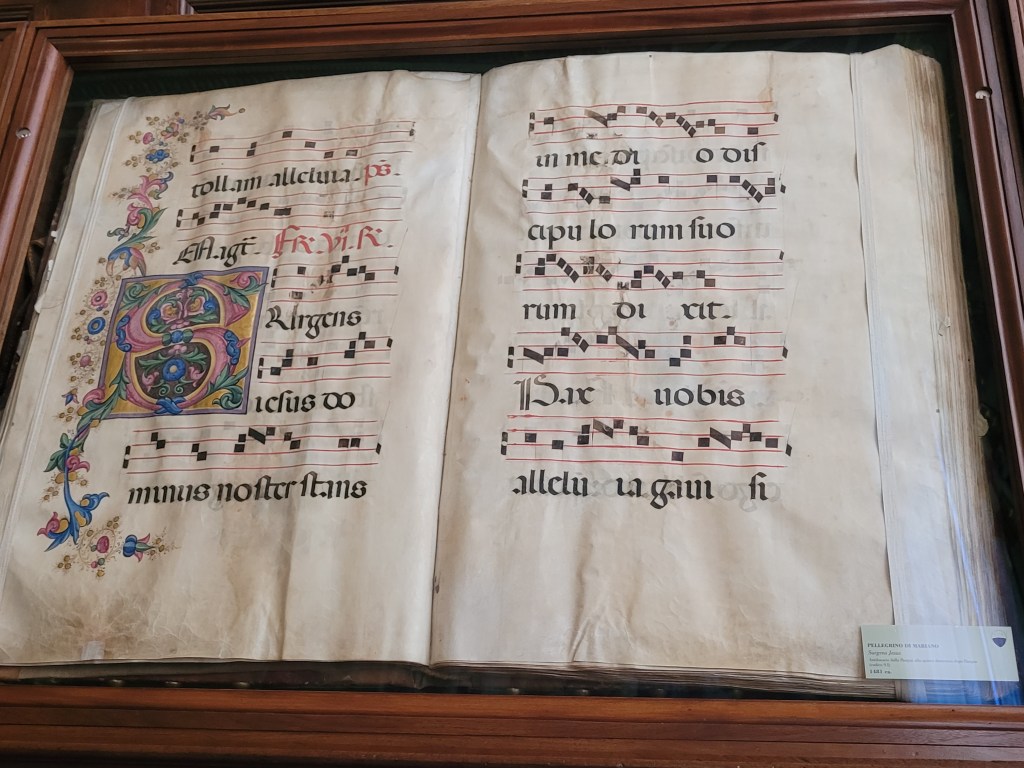 tollam alleluia ps̄.
Magt̄. Fe. vi. R.
SVRrgens
iesus do
minus noster stans
in me. di o dis
cipu lo rum suo
rum di xit.
Pax uobis
allelu ia gaui si
PELLEGRINO DI MARIANO
Surgens Jesus
1481 ca.